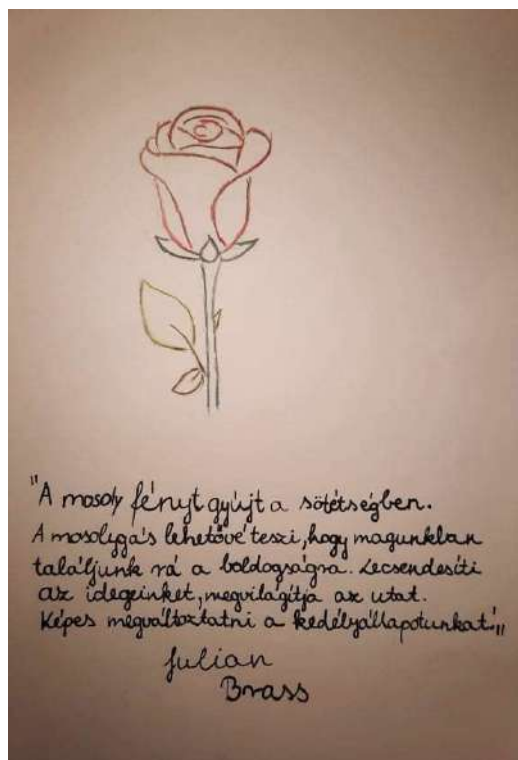 "A mosoly fényt gyújt a sötétségben.
A mosolygás lehetővé teszi, hogy magunkban
találjunk rá a boldogságra. Lecsendesíti
az idegeinket, megvilágítja az utat.
Képes megváltoztatni a kedélyállapotunkat."
Julian
Brass